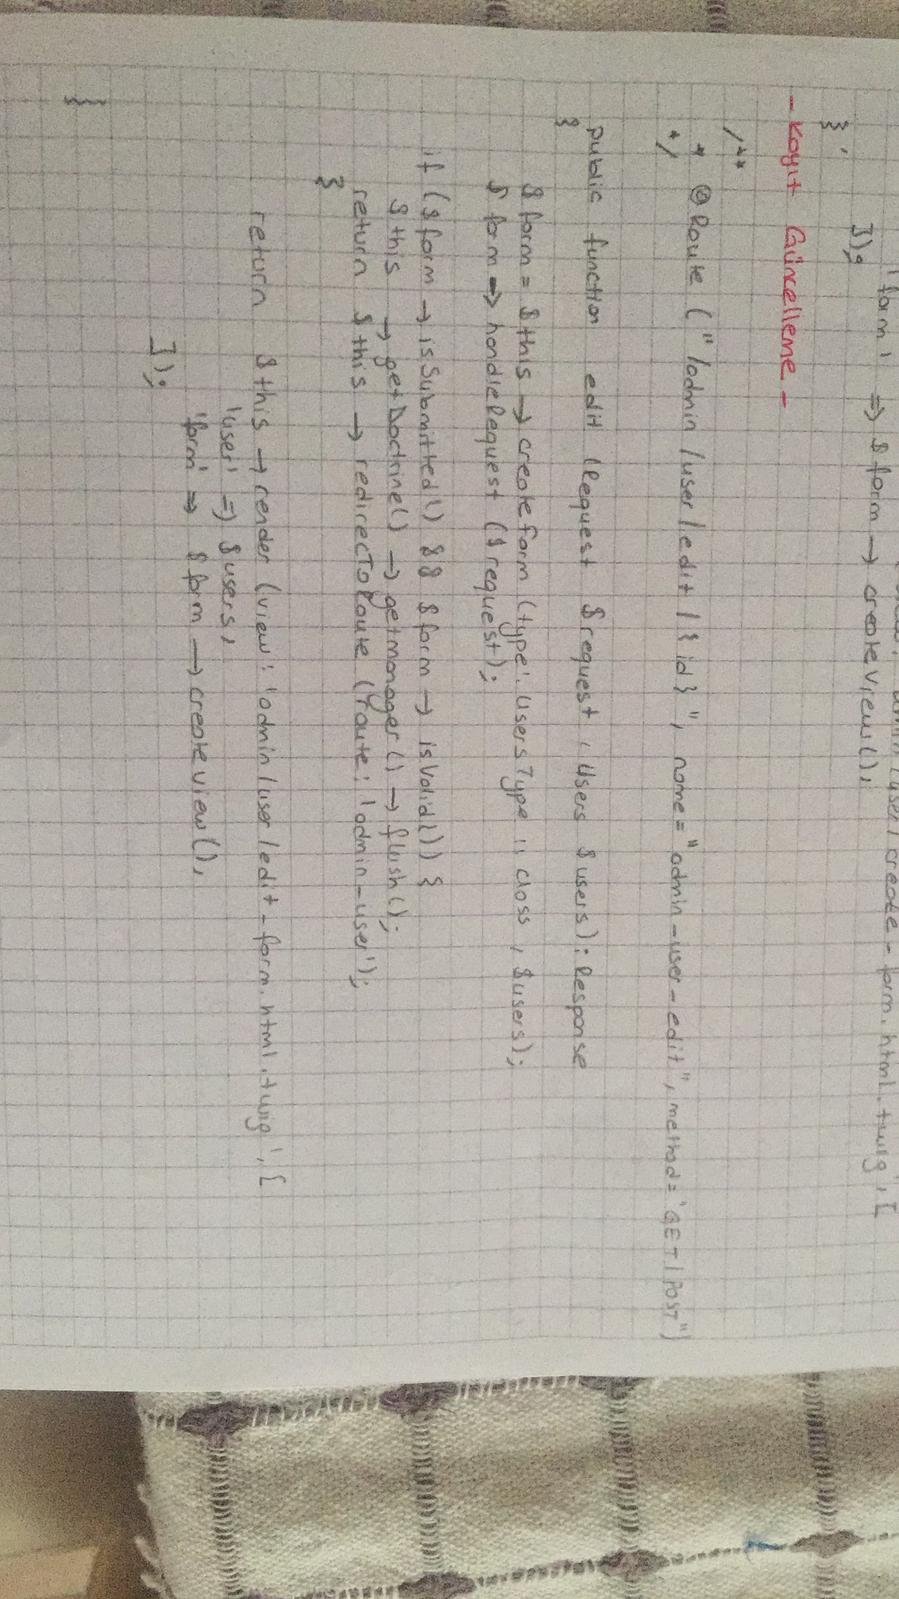 /user/create-form.html.twig', [
'form' => $form -> createView(),
]);
}
- Kayıt Güncelleme -
/**
* @Route ("/admin/user/edit/{id}", name="admin-user-edit", method='GET|POST")
*/
public function edit (Request $request, Users $users): Response
{
$form = $this -> createForm (type: UsersType :: class, $users);
$form -> handleRequest ($request);
if ($form -> isSubmitted() && $form -> isValid()) {
$this -> getDoctrine() -> getmanager() -> flush();
return $this -> redirectToRoute (route: 'admin-user');
}
return $this -> render (view: 'admin/user/edit-form.html.twig', [
'user' => $users,
'form' => $form -> createView(),
]);
}